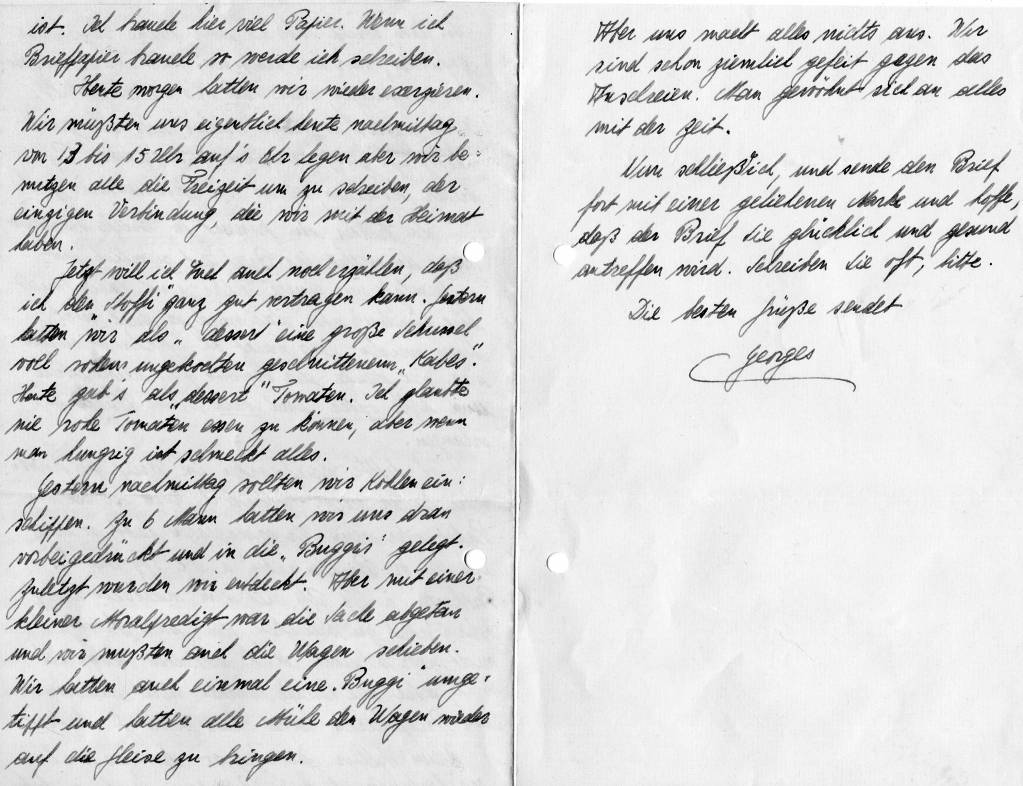 ist. Ich brauche hier viel Papier. Wenn ich
Briefpapier brauche so werde ich schreiben.
Heute morgen hatten wir wieder exerzieren.
Wir müßten uns eigentlich heute nachmittag
von 13 bis 15 Uhr auf's Ohr legen aber wir be-
nutzen alle die Freizeit um zu schreiben, der
einzigen Verbindung, die wir mit der Heimat
haben.
Jetzt will ich Euch auch noch erzählen, daß
ich den "Stoff" ganz gut vertragen kann. Gestern
hatten wir als "dessert" eine große Schüssel
voll rohem ungekochten geschnittenem "Kabes".
Heute gab's als "dessert" Tomaten. Ich glaubte
nie rohe Tomaten essen zu können, aber wenn
man hungrig ist schmeckt alles.
Gestern nachmittag sollten wir Kohlen ein-
schiffen. Zu 6 Mann hatten wir uns dran
vorbeigedrückt und in die "Buggis" gelegt.
Zuletzt wurden wir entdeckt. Aber mit einer
kleiner Moralpredigt war die Sache abgetan
und wir mußten auch die Wagen schieben.
Wir hatten auch einmal eine "Buggi" umge-
tippt und hatten alle Mühe den Wagen wieder
auf die Gleise zu bringen.
Aber uns macht alles nichts aus. Wir
sind schon ziemlich gefeit gegen das
Anschreien. Man gewöhnt sich an alles
mit der Zeit.
Nun schließ' ich, und sende den Brief
fort mit einer geliehenen Marke und hoffe,
daß der Brief Sie glücklich und gesund
antreffen wird. Schreiben Sie oft, bitte.
Die besten Grüße sendet
Georges